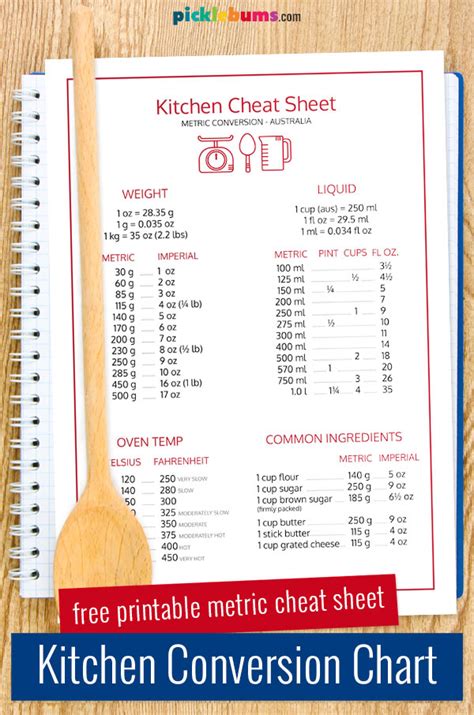 picklebums.com
Kitchen Cheat Sheet
METRIC CONVERSION - AUSTRALIA
WEIGHT
1 oz = 28.35 g
1 g = 0.035 oz
1 kg = 35 oz (2.2 lbs)
METRIC IMPERIAL
30 g 1 oz
60 g 2 oz
85 g 3 oz
115 g 4 oz (¼ lb)
140 g 5 oz
170 g 6 oz
200 g 7 oz
230 g 8 oz (½ lb)
9 oz
285 g 10 oz
450 g 16 oz (1 lb)
500 g 17 oz
LIQUID
1 cup (aus) = 250 ml
1 fl oz = 29.5 ml
1 ml = 0.034 fl oz
METRIC PINT CUPS FL OZ.
100 ml 3½
125 ml ½ 4½
150 ml ¼ 5
200 ml 7
250 ml 1 9
275 ml ½ 10
300 ml 11
400 ml 14
500 ml 2 18
570 ml 1 20
750 ml 3 26
1.0 l 1¾ 4 35
OVEN TEMP
CELSIUS FAHRENHEIT
120 250 VERY SLOW
150 300 SLOW
160 325 MODERATELY SLOW
180 350 MODERATE
375 MODERATELY HOT
400 HOT
450 HOT
COMMON INGREDIENTS
METRIC IMPERIAL
1 cup flour 140 g 5 oz
1 cup sugar 250 g 9 oz
1 cup brown sugar 185 g 6½ oz
(firmly packed)
1 cup butter 250 g 9 oz
1 stick butter 115 g 4 oz
1 cup grated cheese 115 g 4 oz
free printable metric cheat sheet
Kitchen Conversion Chart